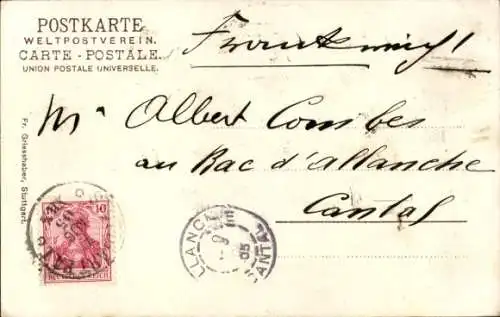 POSTKARTE
WELTPOSTVEREIN.
CARTE - POSTALE.
UNION POSTALE UNIVERSELLE.
Frankreich!
Mr Albert Combes
au Bac d'allanche
Cantal
Fr. Griesshaber, Stuttgart.
10
DEUTSCHES REICH
LLANC
9
05
CANTAL